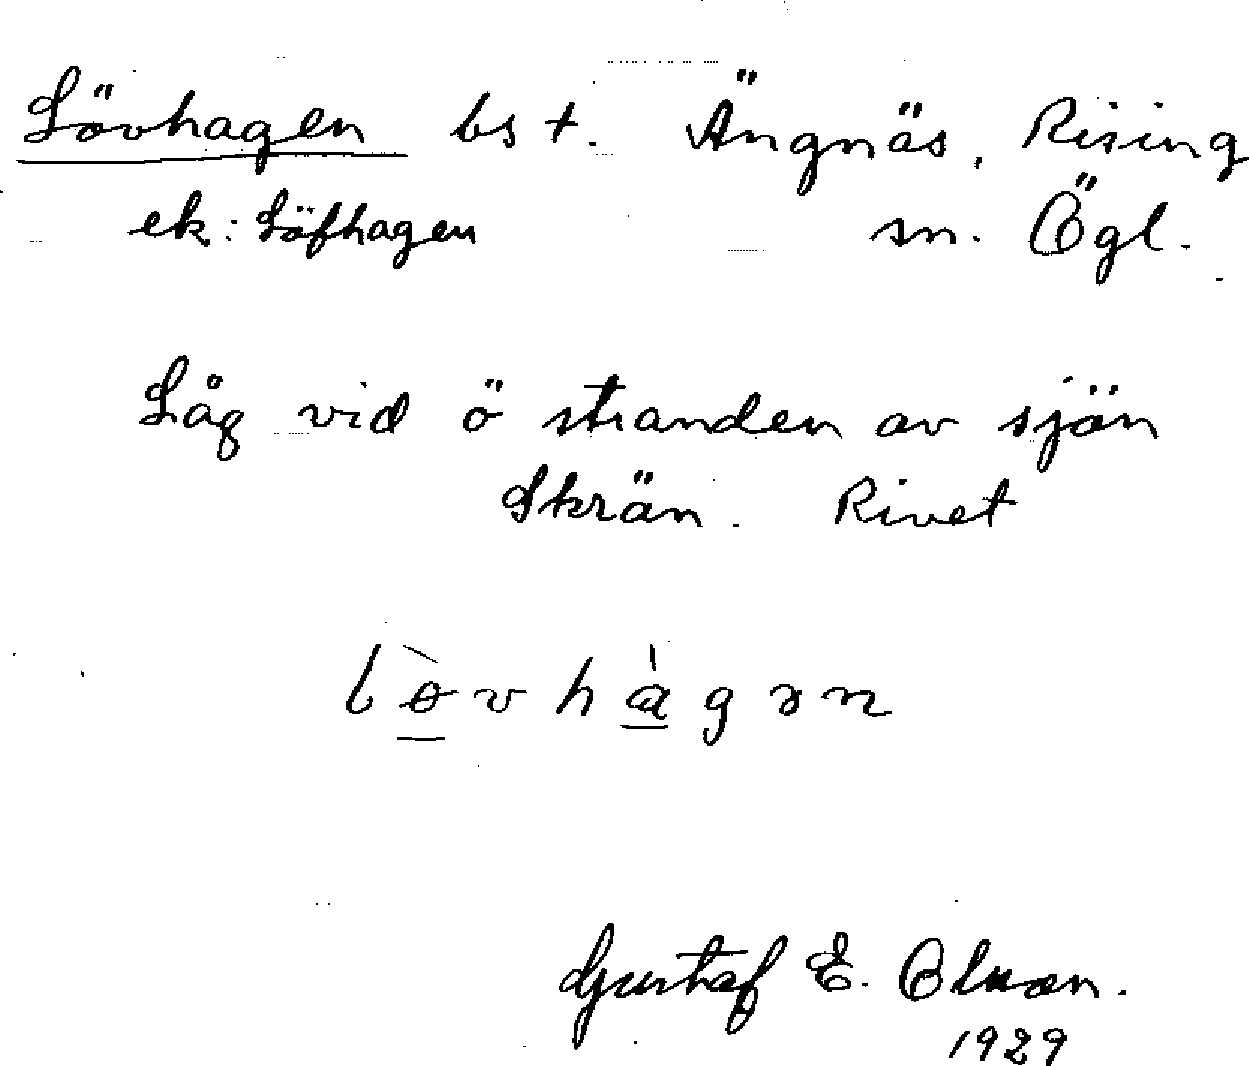 Lövhagen bs t. Ängnäs, Rising
ek: Löfhagen sn. Ögl.
Låg vid ö stranden av sjön
Skrän. Rivet
lòvhàgən
Gustaf E. Olsson.
1929